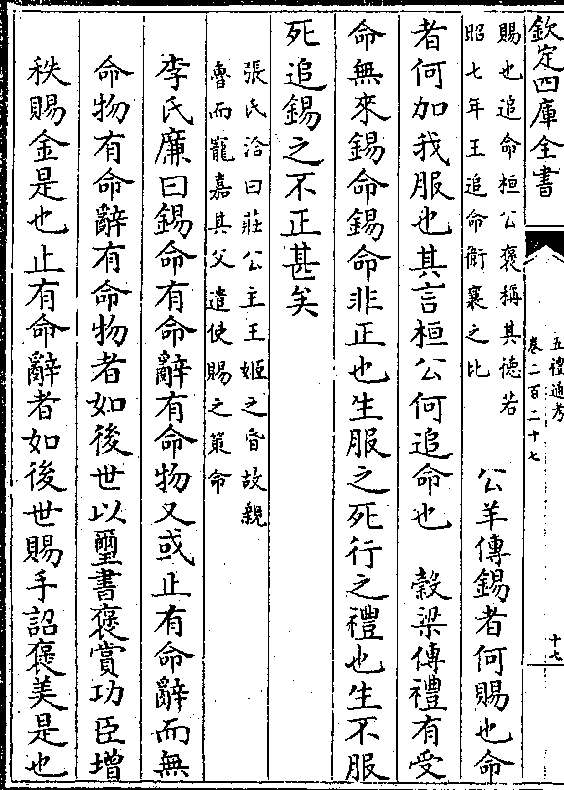 欽定四庫全書
五禮通考
卷二百二十七
十七
賜也追命桓公褒稱其德若
昭七年王追命衛襄之比
公羊傳錫者何賜也命
者何加我服也其言桓公何追命也 穀梁傳禮有受
命無來錫命錫命非正也生服之死行之禮也生不服
死追錫之不正甚矣
張氏洽曰莊公主王姬之昏故親
魯而寵嘉其父遣使賜之策命
李氏廉曰錫命有命辭有命物又或止有命辭而無
命物有命辭有命物者如後世以璽書褒賞功臣增
秩賜金是也止有命辭者如後世賜手詔褒美是也